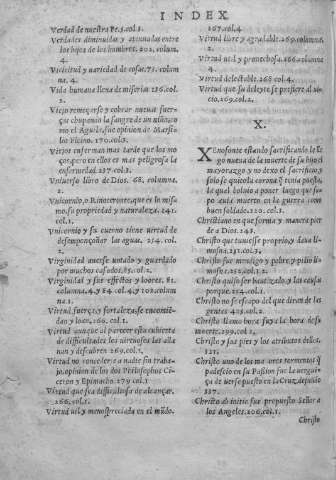 INDEX
Verdad de nuestra Fe.3.col.1.
Verdades diminuidas y atenuadas entre
los hijos de los hombres. 202. colum.
4.
Vicitud y variedad de cosas.75. colum-
na. 4.
Vida humana llena de miserias 126.col.
2.
Viejo remoçarse y cobrar nueuas fuer-
ças chupando la sangre de un
es opinion de Marsi-
lio Ficino. 170.col.3.
Viejos enferman mas tarde que los mo-
ços, pero en ellos es mas peligrosa la
enfermedad.237.col.3.
Vniuerso libro de Dios. 68. columna.
2.
Vnicornio, o Rinoceronte, que es lo mis-
mo, su propriedad y naturaleza.241.
col.1.
Vnicornio y su cuerno tiene virtud de
desemponçoñar las aguas. 254. col.
2.
Virginidad auerse votado y guardado
por muchos casados.85.col.2.
Virginidad y sus effectos y loores. 81.
columna.4.y 84. col.4.y 102.colum
na.1.
Virtud fuerça y fortaleza se encomiē-
dan y loan.160. col.1.
Virtud aunque al parecer esta cubierta
de difficultades los virtuosos las alla
nan y desazen 269.col.2.
Virtud no concederse a nadie sin traba-
jo, opinion de los dos Philosophos Ci-
ceron y Epimacho. 279.col.1
Virtud que sea difficultosa de alcançar.
266.col.1.
Virtud vil y menospreciada en el mūdo.
267.col.4
Virtud libre y agradable.269.columna.
2.
Virtud vtil y prouechosa.266.columna
4.
Virtud delectable.268.col.4.
Virtud que su deleyte se prefiere al vi-
cio.269.col.2.
X.
XEnofonte estando sacrificando le lle-
go nueua de la muerte de su hijo el
mayorazgo y no dexo el sacrificio,
solo se quito la corona que tenia puesta,
la qual boluio a poner luego que su-
po auia muerto en la guerra como
buen soldado.220.col.1.
Christiano en que forma y manera imi-
te a Dios.242.
Christo que tuuiesse proprio, y daua li-
mosna.251.col.3.
Christo fue mendigo y pobre, y pidio li-
mosna.252.col.1.2.
Christo quiso ser bautizado, y las causas
porque.254.col.1.
Christo no se escapo del que diran de las
gentes 405.col.2.
Christo llamo hora suya la hora de su
muerte.299.col.1.
Christo y sus pies y los atributos dellos.
121.
Christo uno de los mayores tormentos q̃
padescio en su Passion fue la verguen-
ça de verse puesto en la Cruz, desnudo
127.
Christo ab initio fue propuesto Señor a
los Angeles.206.col.1.
Christo